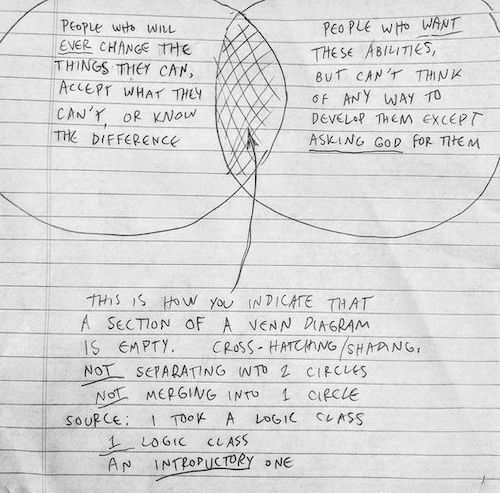 PEOPLE WHO WILL
EVER CHANGE THE
THINGS THEY CAN,
ACCEPT WHAT THEY
CAN'T, OR KNOW
THE DIFFERENCE
PEOPLE WHO WANT
THESE ABILITIES,
BUT CAN'T THINK
OF ANY WAY TO
DEVELOP THEM EXCEPT
ASKING GOD FOR THEM
THIS IS HOW YOU INDICATE THAT
A SECTION OF A VENN DIAGRAM
IS EMPTY. CROSS-HATCHING/SHADING.
NOT SEPARATING INTO 2 CIRCLES
NOT MERGING INTO 1 CIRCLE
SOURCE: I TOOK A LOGIC CLASS
1 LOGIC CLASS
AN INTRODUCTORY ONE